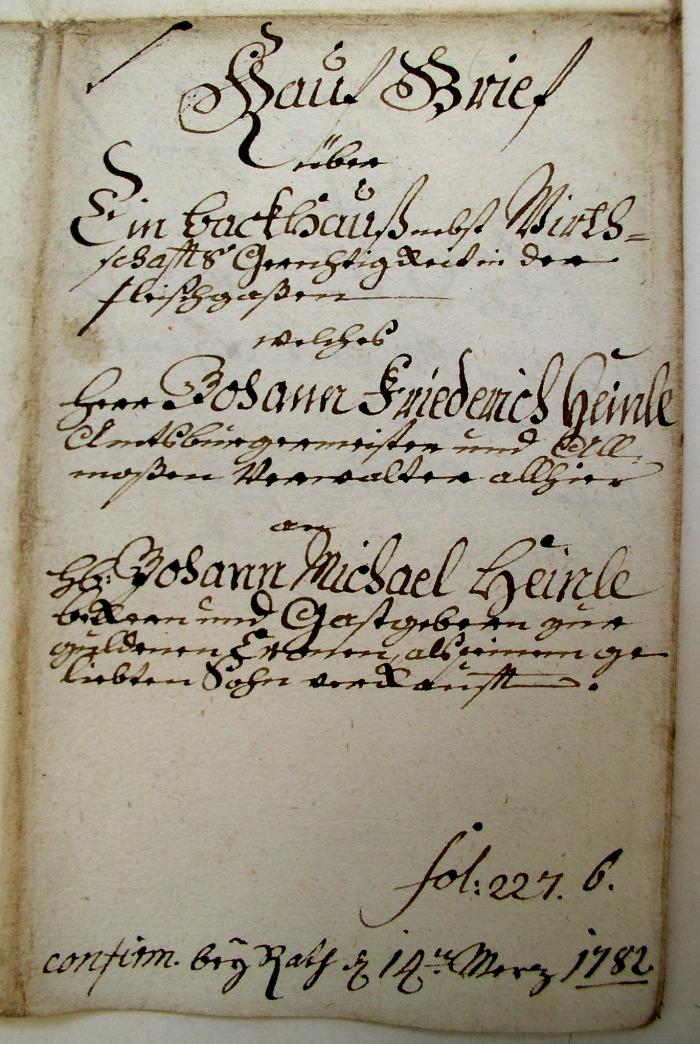 Kauf Brief
über
Ein backhauß nebst Wirth=
schaffts Gerechtigkeit in der
fleischgaßen
welches
Herr Johann Friederich Heinle
Amtsburgermeister und All
moßen Verwalter allhier
an
Hl: Johann Michael Heinle
beckern und Gastgebern zur
güldenen Cronen, als seinem ge
liebten Sohn verkaufft.
fol: 227. 6.
confirm. bey Rath d. 14ten Merz 1782